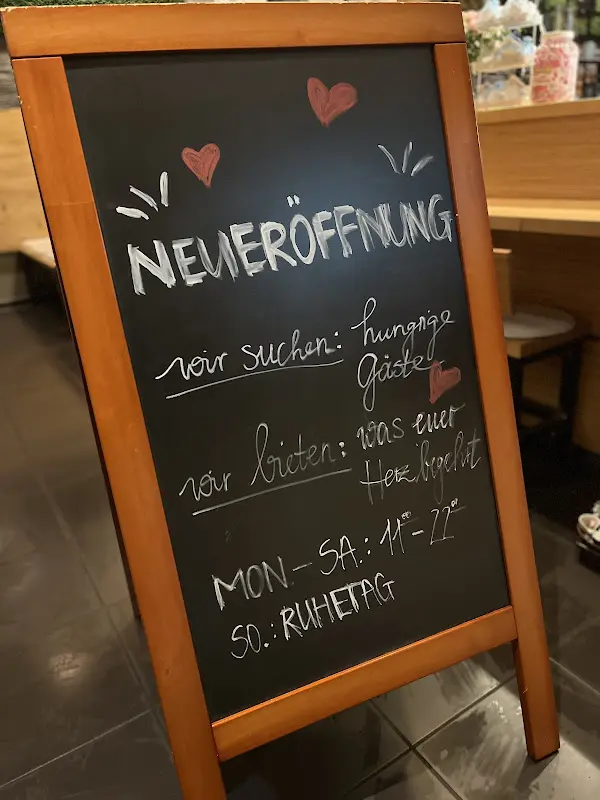 NEUERÖFFNUNG
wir suchen: hungrige
Gäste
wir bieten: was euer
Herz begehrt
MON.-SA.: 11⁰⁰-22⁰⁰
SO.: RUHETAG